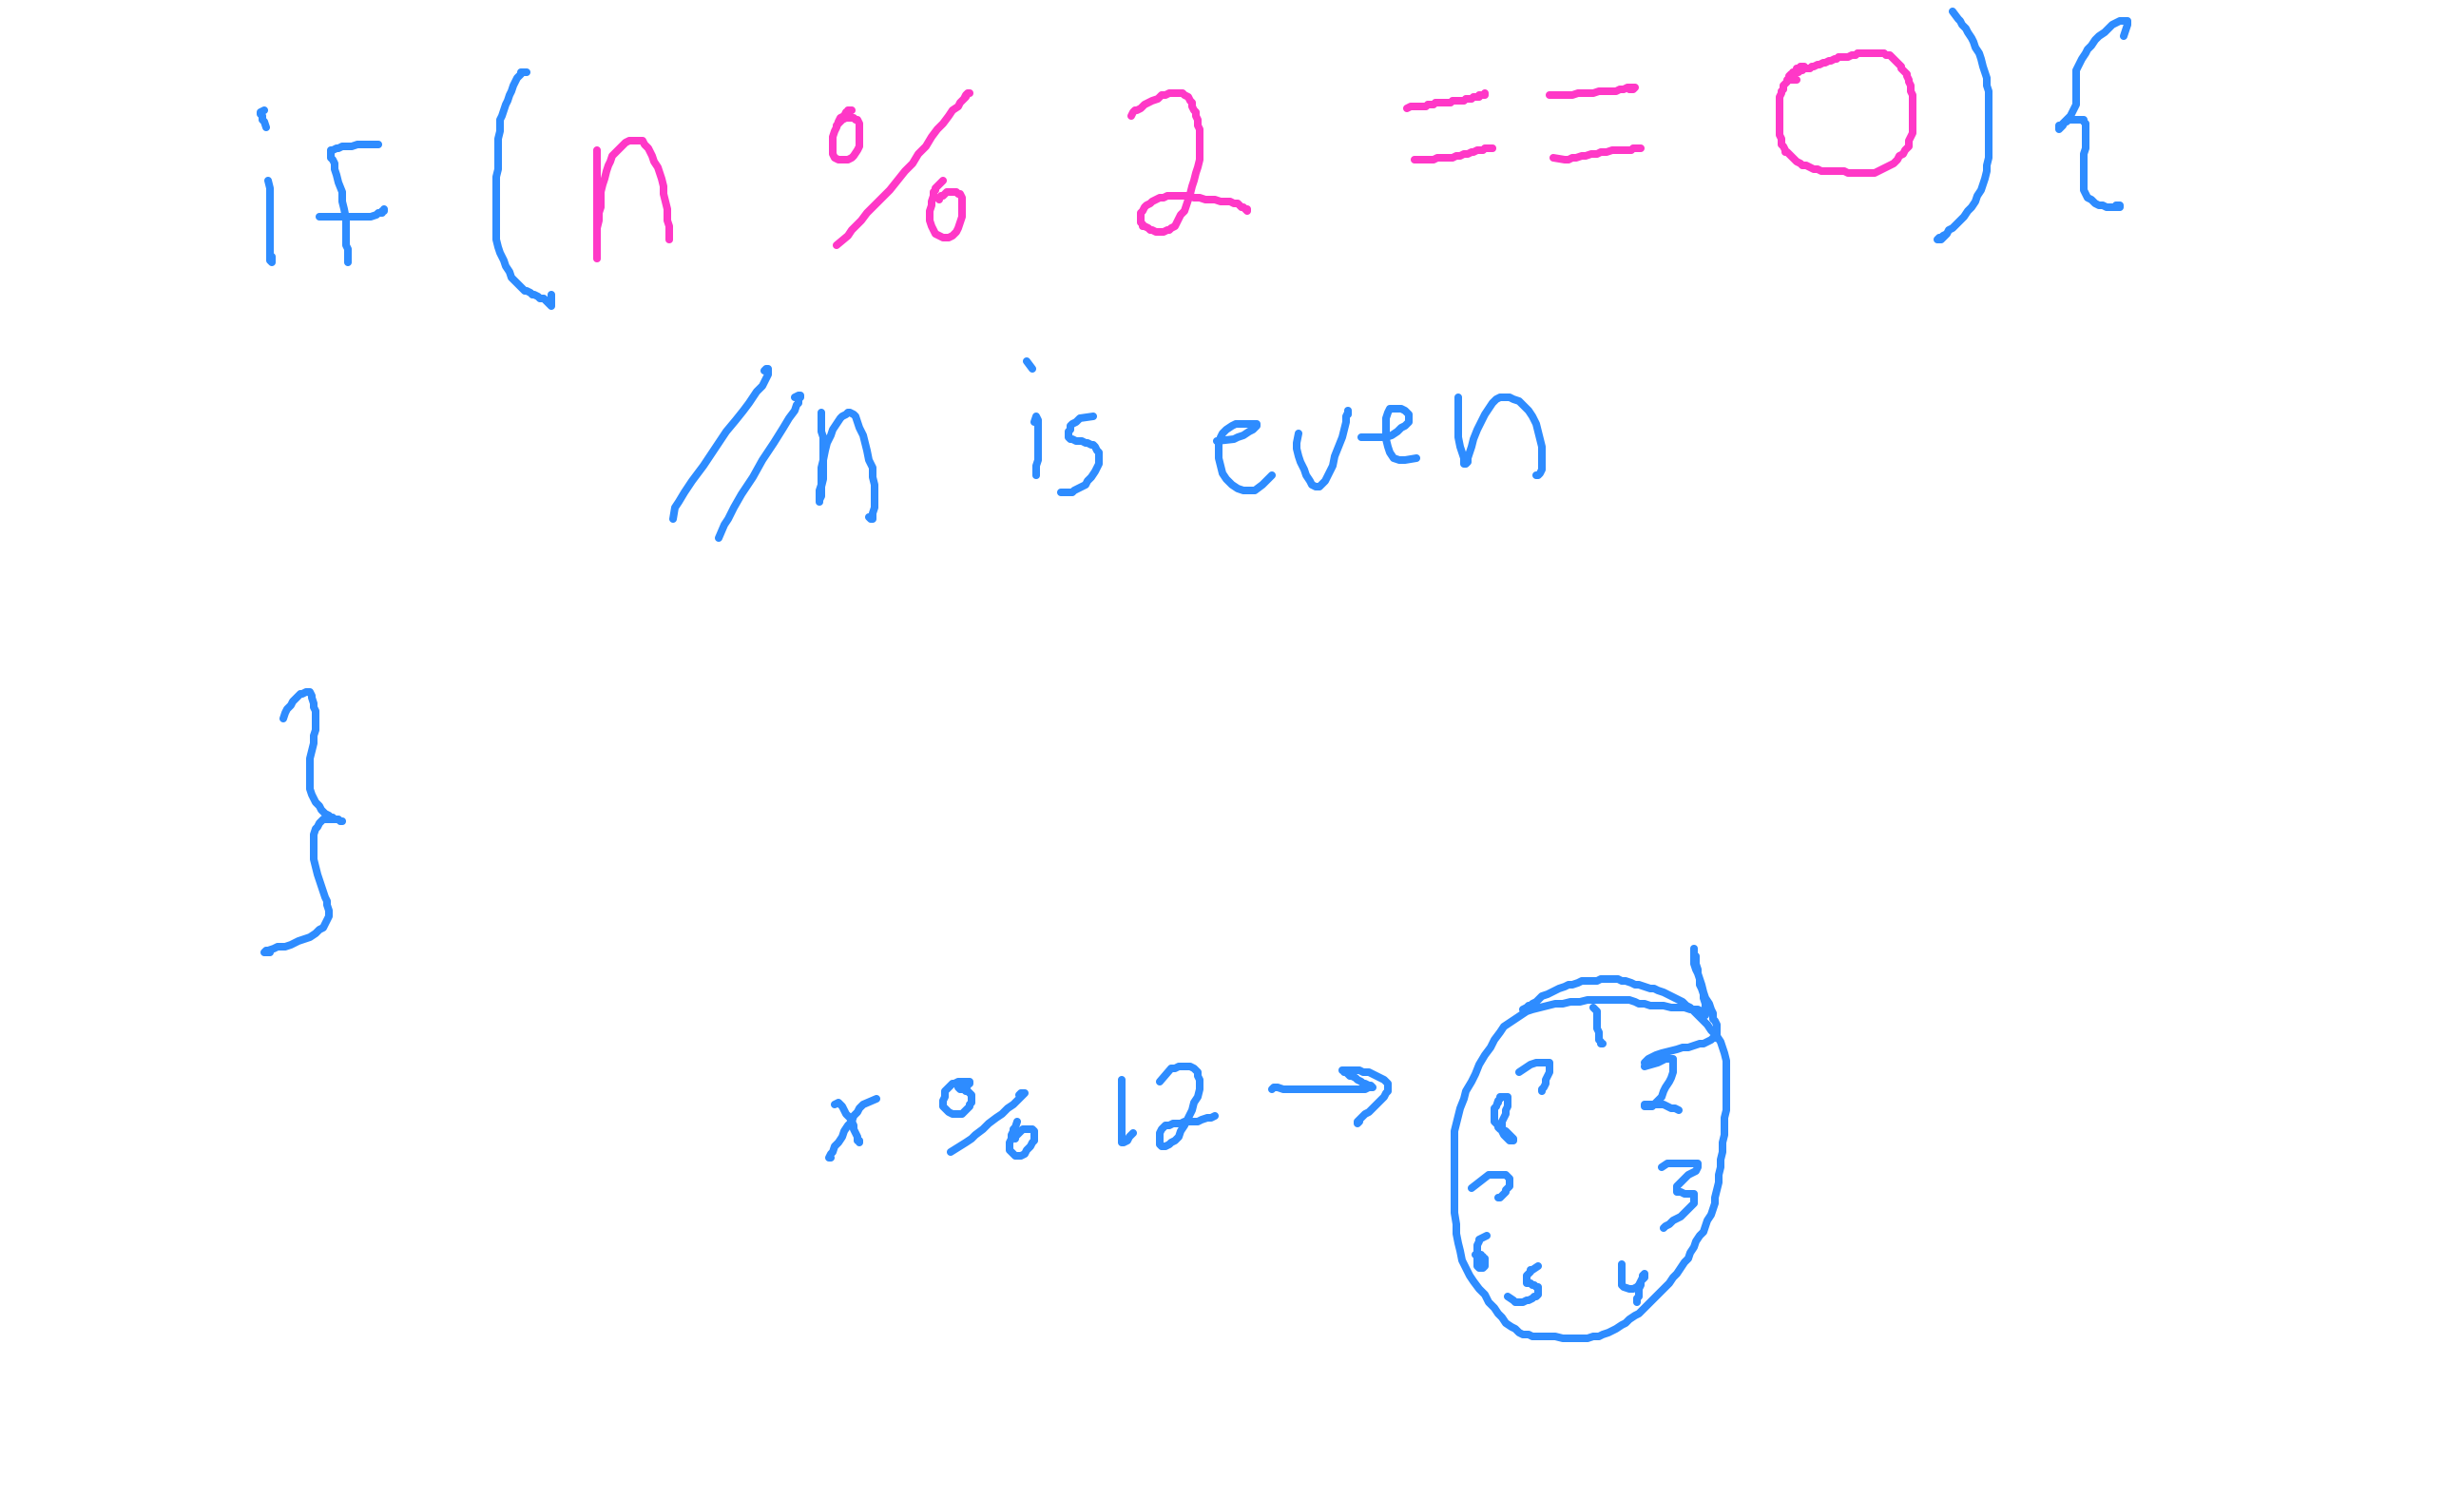 if (n % 2 == 0) {
//n is even
}
x % 12 →
1
2
3
4
5